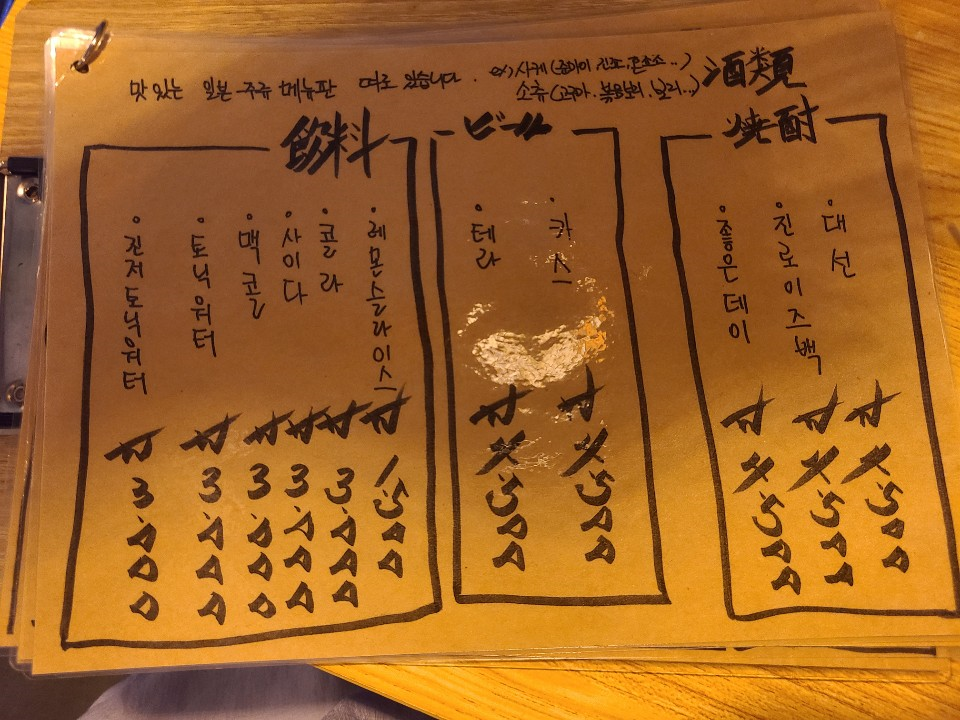 酒類
맛있는 일본 주류 메뉴판 따로 있습니다. ex) 사케(
소츄(고구마.볶은보리.보리..)
焼酎
•대선 ₩4.500
•진로이즈백 ₩4.500
•좋은데이 ₩4.500
ビール
•카스 ₩4.500
•테라 ₩4.500
飲料
•레몬슬라이스 ₩1.500
•콜라 ₩3.000
•사이다 ₩3.000
•맥콜 ₩3.000
•토닉워터 ₩3.000
•진저토닉워터 ₩3.000